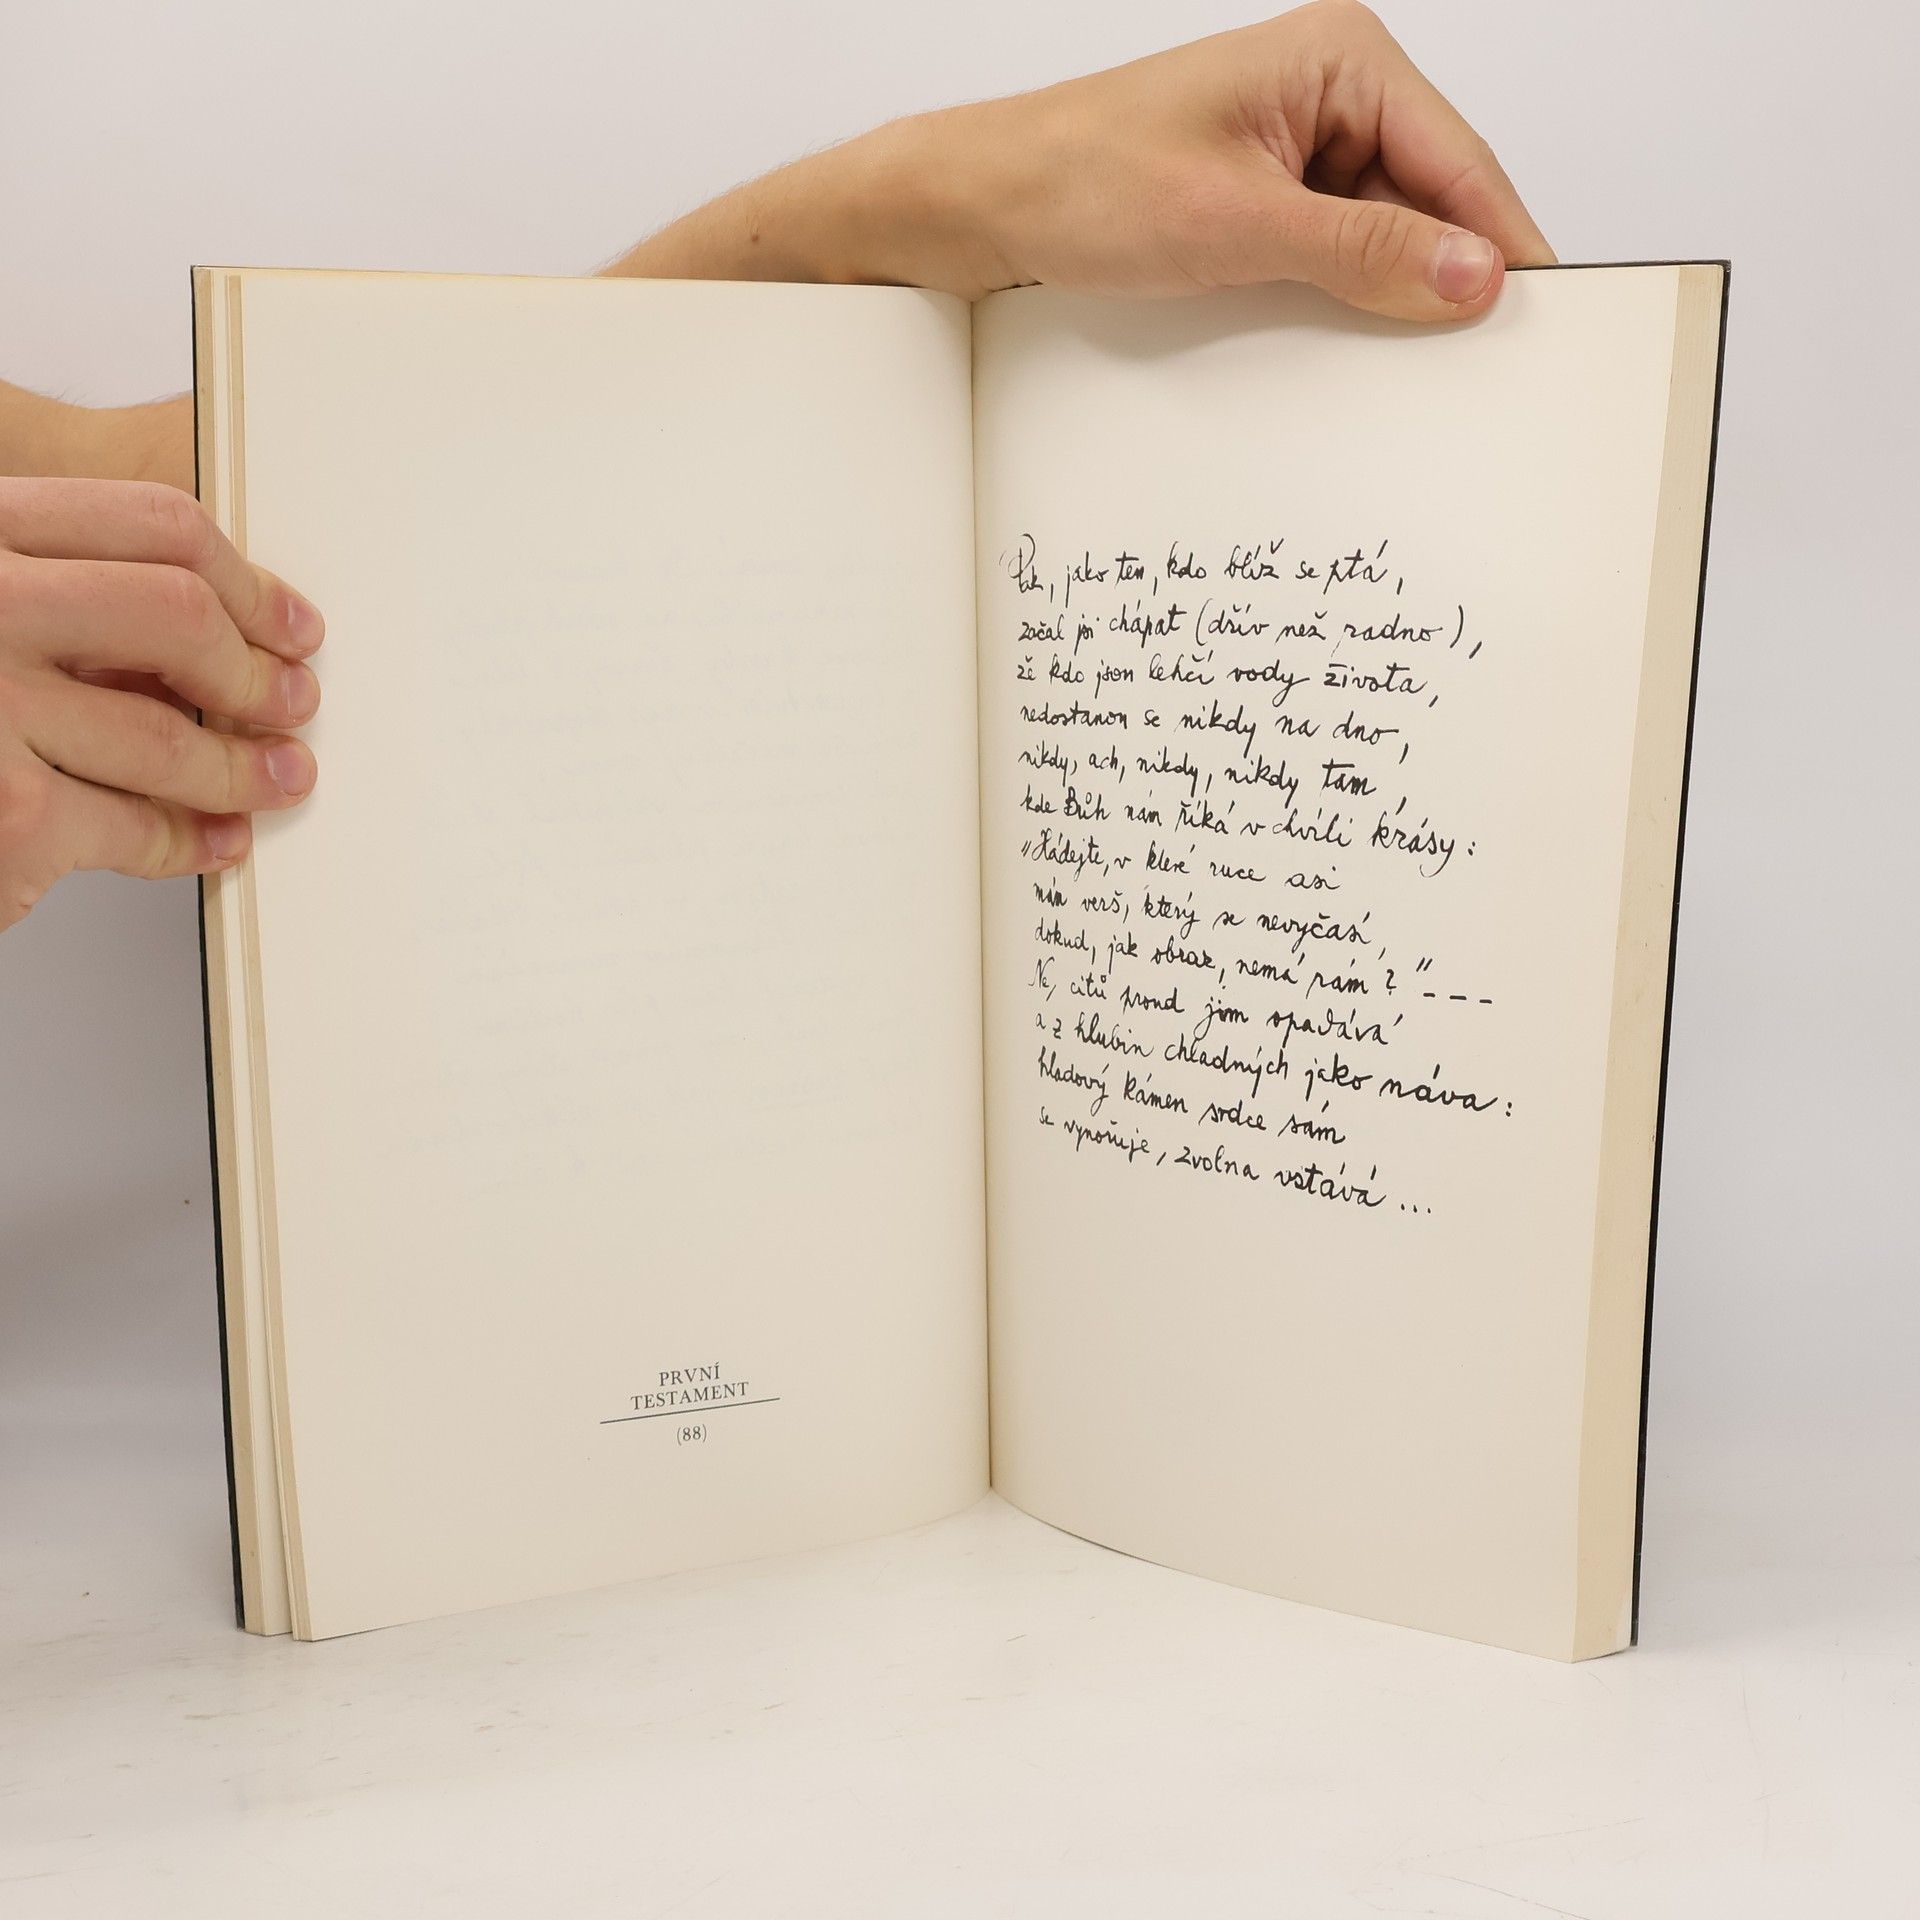 PRVNÍ
TESTAMENT
(88)
Pak, jako ten, kdo blíž se ptá,
začal jsi chápat (dřív než radno),
že kdo jsou lehčí vody života,
nedostanou se nikdy na dno,
nikdy, ach, nikdy, nikdy tam,
kde Bůh nám říká v chvíli krásy:
"Hádejte, v které ruce asi
mám verš, který se nevyčasí,
dokud, jak obraz, nemá rám?" - - -
Ne, citů proud jim opadává
a z hlubin chladných jako náva:
hladový kámen srdce sám
se vynořuje, zvolna vstává ...